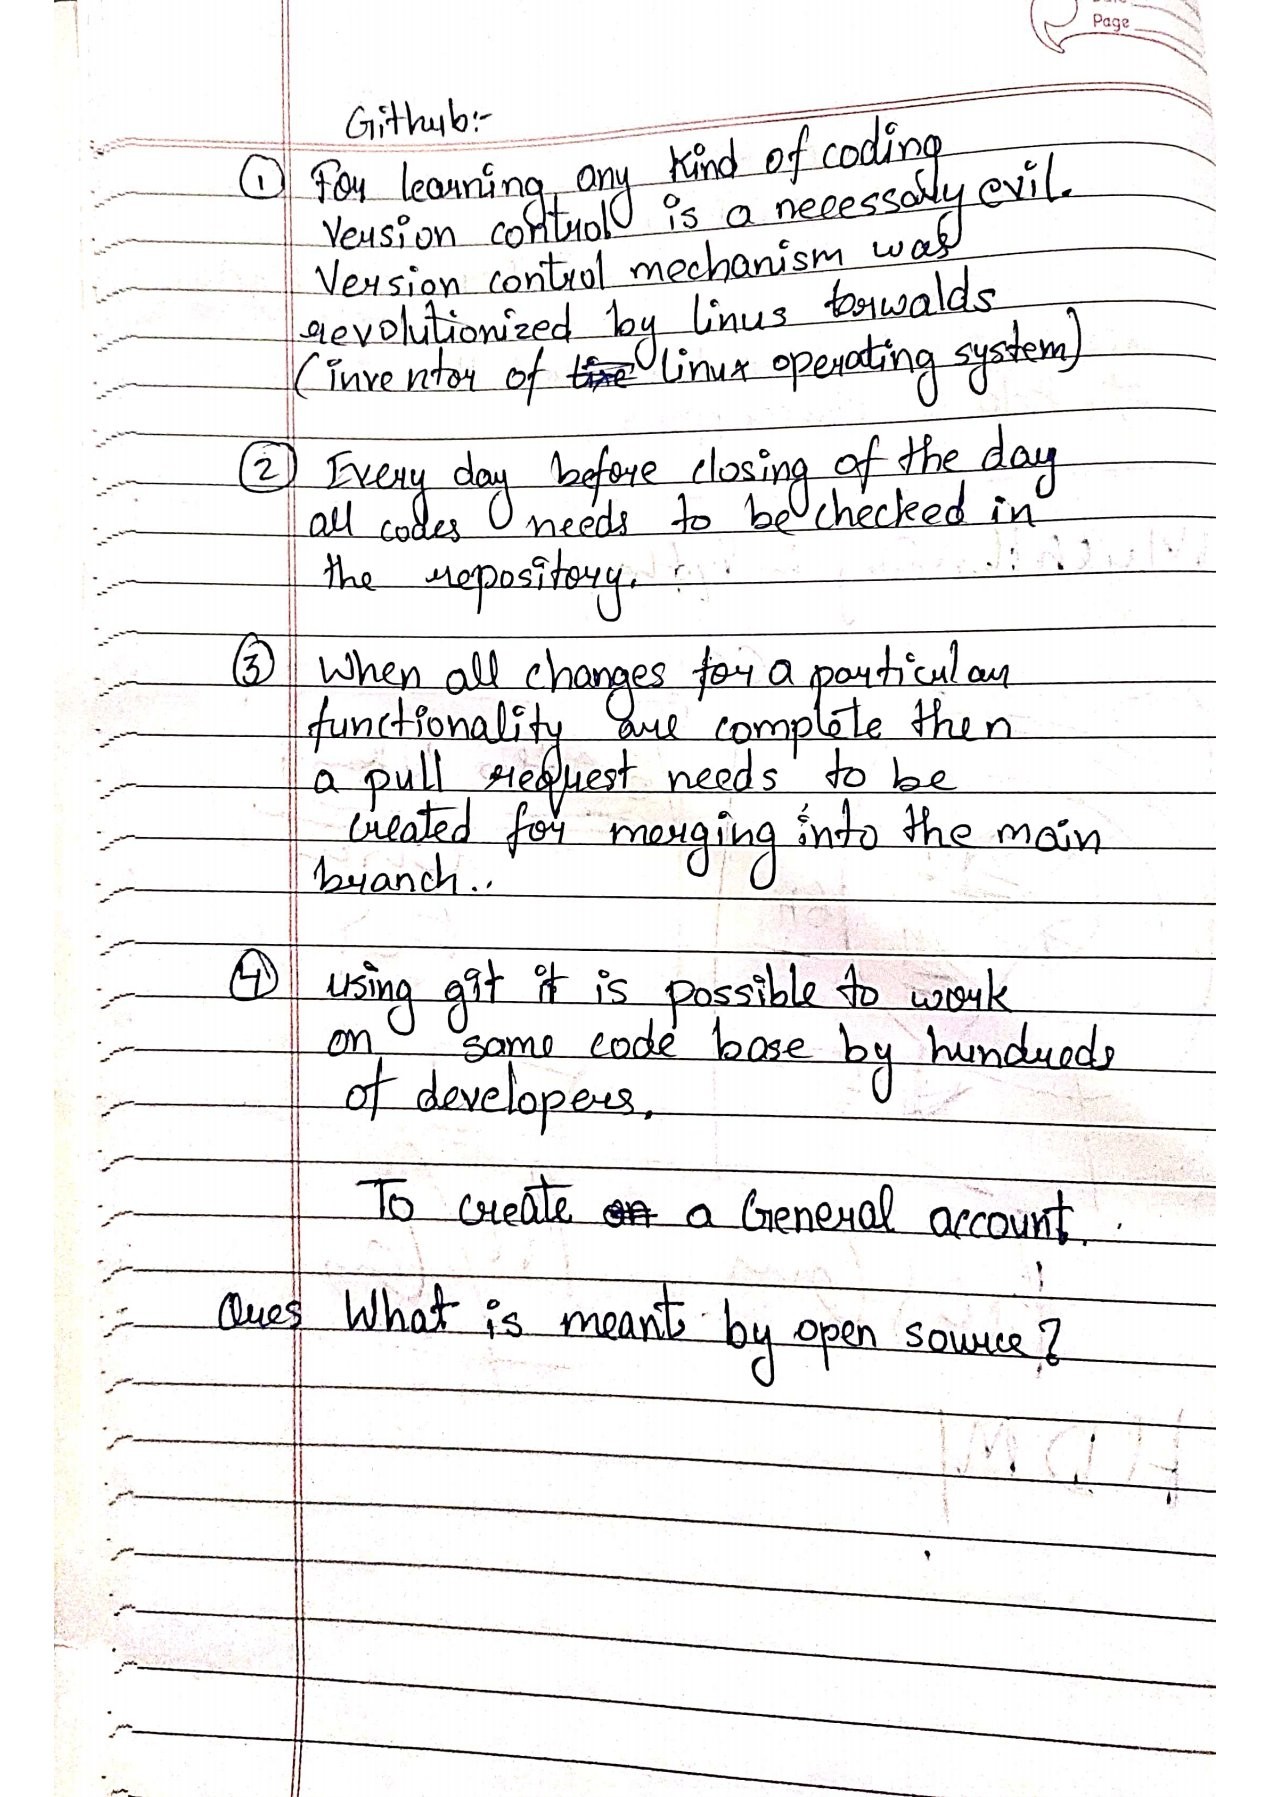 Page
Github:-
① For learning any kind of coding
Version control is a necessary evil.
Version control mechanism was
revolutionized by linus torwalds
(inventor of linux operating system)
② Every day before closing of the day
all codes needs to be checked in
the repository.
③ When all changes for a particular
functionality are complete then
a pull request needs to be
created for merging into the main
branch..
④ using git it is possible to work
on same code base by hundreds
of developers.
To create a General account.
Ques What is meant by open source?